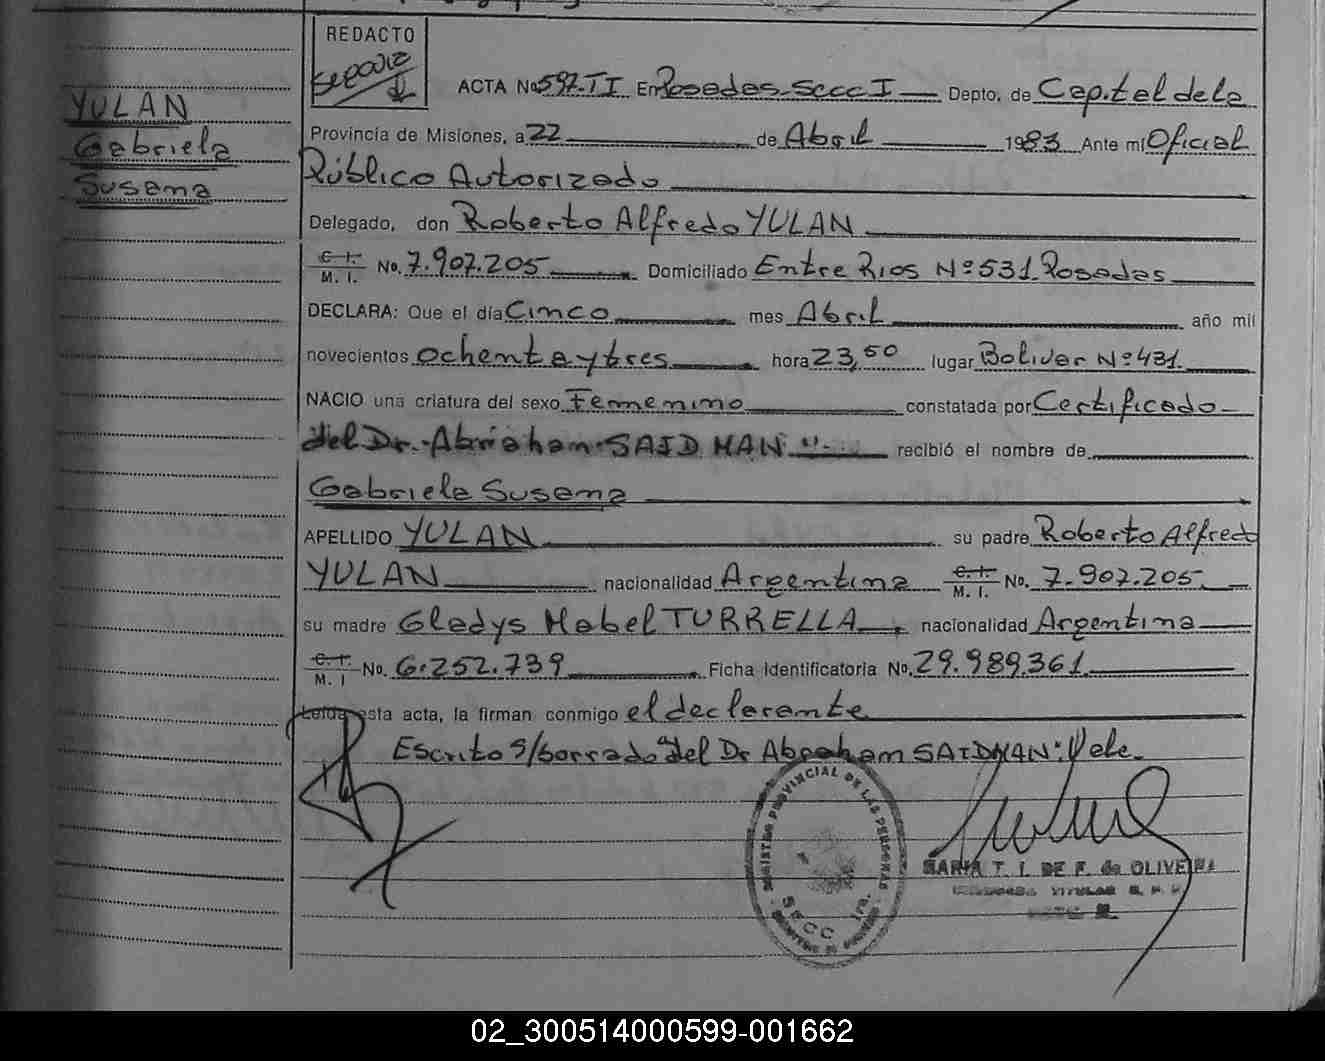 REDACTO
YULAN
Gabriela
Susana
ACTA No. 597.TI En Posadas-Secc I Depto, de Capital de la
Provincia de Misiones, a 22 de Abril 1983 Ante mí Oficial
Público Autorizado
Delegado, don Roberto Alfredo YULAN
C. I. M. I. No. 7.907.205 Domiciliado Entre Rios Nº 531 Posadas
DECLARA: Que el día Cinco mes Abril año mil
novecientos ochenta y tres hora 23,50 lugar Bolivar Nº 431.
NACIO una criatura del sexo Femenino constatada por Certificado
del Dr. Abraham SAIDMAN recibió el nombre de
Gabriela Susana
APELLIDO YULAN su padre Roberto Alfredo
YULAN nacionalidad Argentina C. I. M. I. No. 7.907.205
su madre Gladys Mabel TURRELLA, nacionalidad Argentina
C. I. M. I No. 6.252.739 Ficha Identificatoria No. 29.989.361
Leída esta acta, la firman conmigo el declarante
Escrito s/borrado "del Dr Abraham SAIDMAN": Vale.
REGISTRO PROVINCIAL DE LAS PERSONAS
SECC 1ra.
MARIA T. I. DE F. de OLIVEIRA
02_300514000599-001662